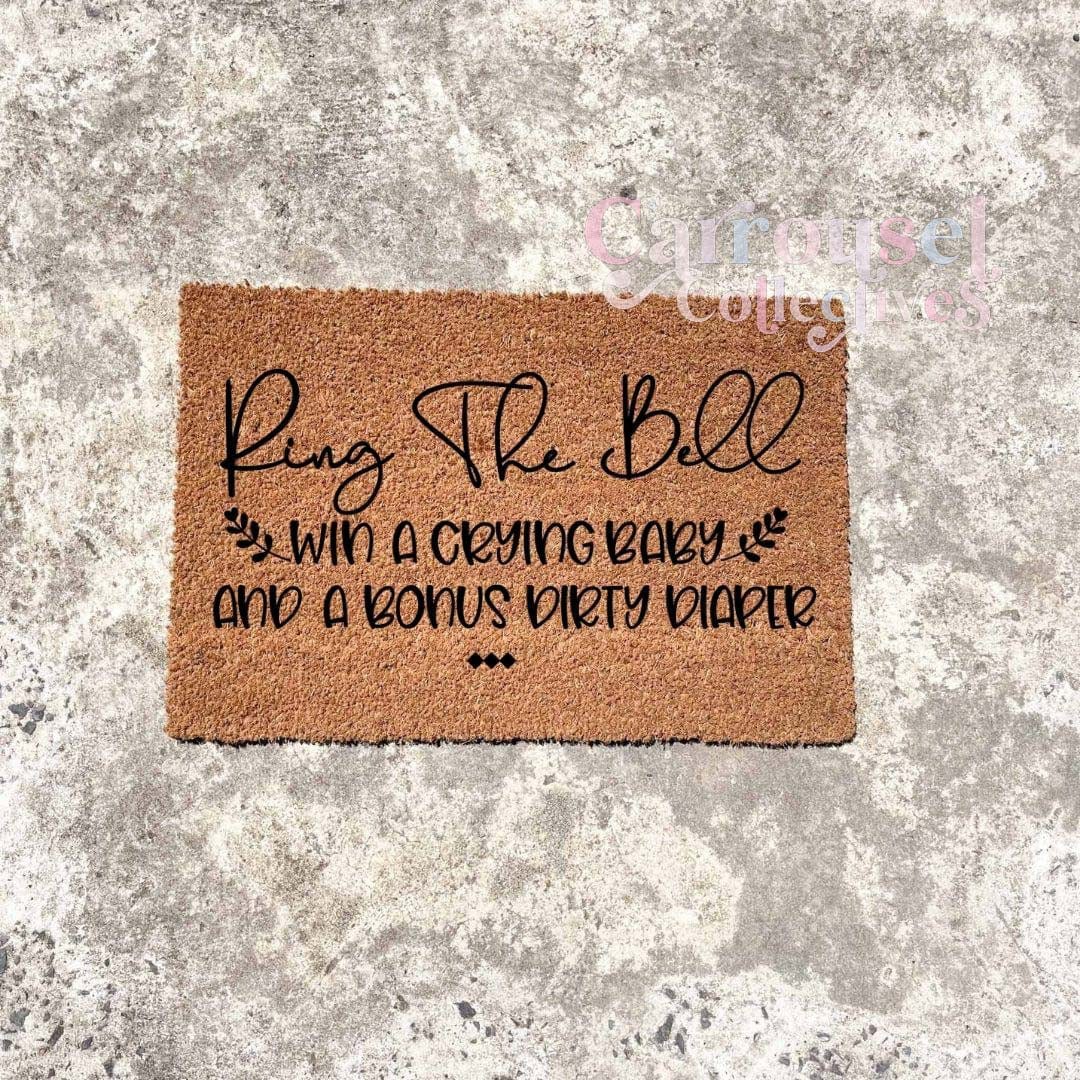 Carrousel
Collectives
Ring The Bell
WIN A CRYING BABY
AND A BONUS DIRTY DIAPER